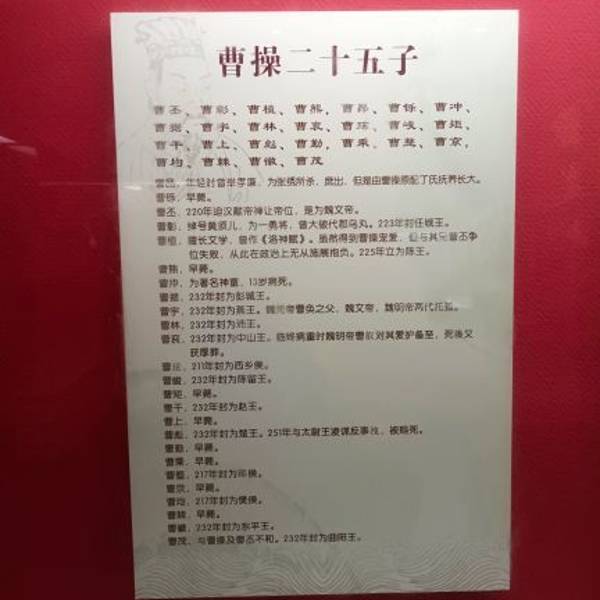 曹操二十五子
曹丕、曹彰、曹植、曹熊、曹昂、曹铄、曹冲、
曹据、曹宇、曹林、曹衮、曹玹、曹峻、曹矩、
曹干、曹上、曹彪、曹勤、曹乘、曹整、曹京、
曹均、曹棘、曹徽、曹茂
曹昂，年轻时曾举孝廉，为张绣所杀，庶出，但是由曹操原配丁氏抚养长大。
曹铄，早薨。
曹丕，220年迫汉献帝禅让帝位，是为魏文帝。
曹彰，绰号黄须儿，为一勇将，曾大破代郡乌丸。223年封任城王。
曹植，擅长文学，曾作《洛神赋》。虽然得到曹操宠爱，但与其兄曹丕争
位失败，从此在政治上无从施展抱负。225年立为陈王。
曹熊，早薨。
曹冲，为著名神童，13岁病死。
曹据，232年封为彭城王。
曹宇，232年封为燕王。魏元帝曹奂之父，魏文帝，魏明帝两代托孤。
曹林，232年封为沛王。
曹衮，232年封为中山王。临终病重时魏明帝曹叡对其爱护备至，死后又
获厚葬。
曹玹，211年封为西乡侯。
曹峻，232年封为陈留王。
曹矩，早薨。
曹干，232年封为赵王。
曹上，早薨。
曹彪，232年封为楚王。251年与太尉王凌谋反事找，被赐死。
曹勤，早薨。
曹乘，早薨。
曹整，217年封为郿侯。
曹京，早薨。
曹均，217年封为樊侯。
曹棘，早薨。
曹徽，232年封为东平王。
曹茂，与曹操及曹丕不和。232年封为曲阳王。